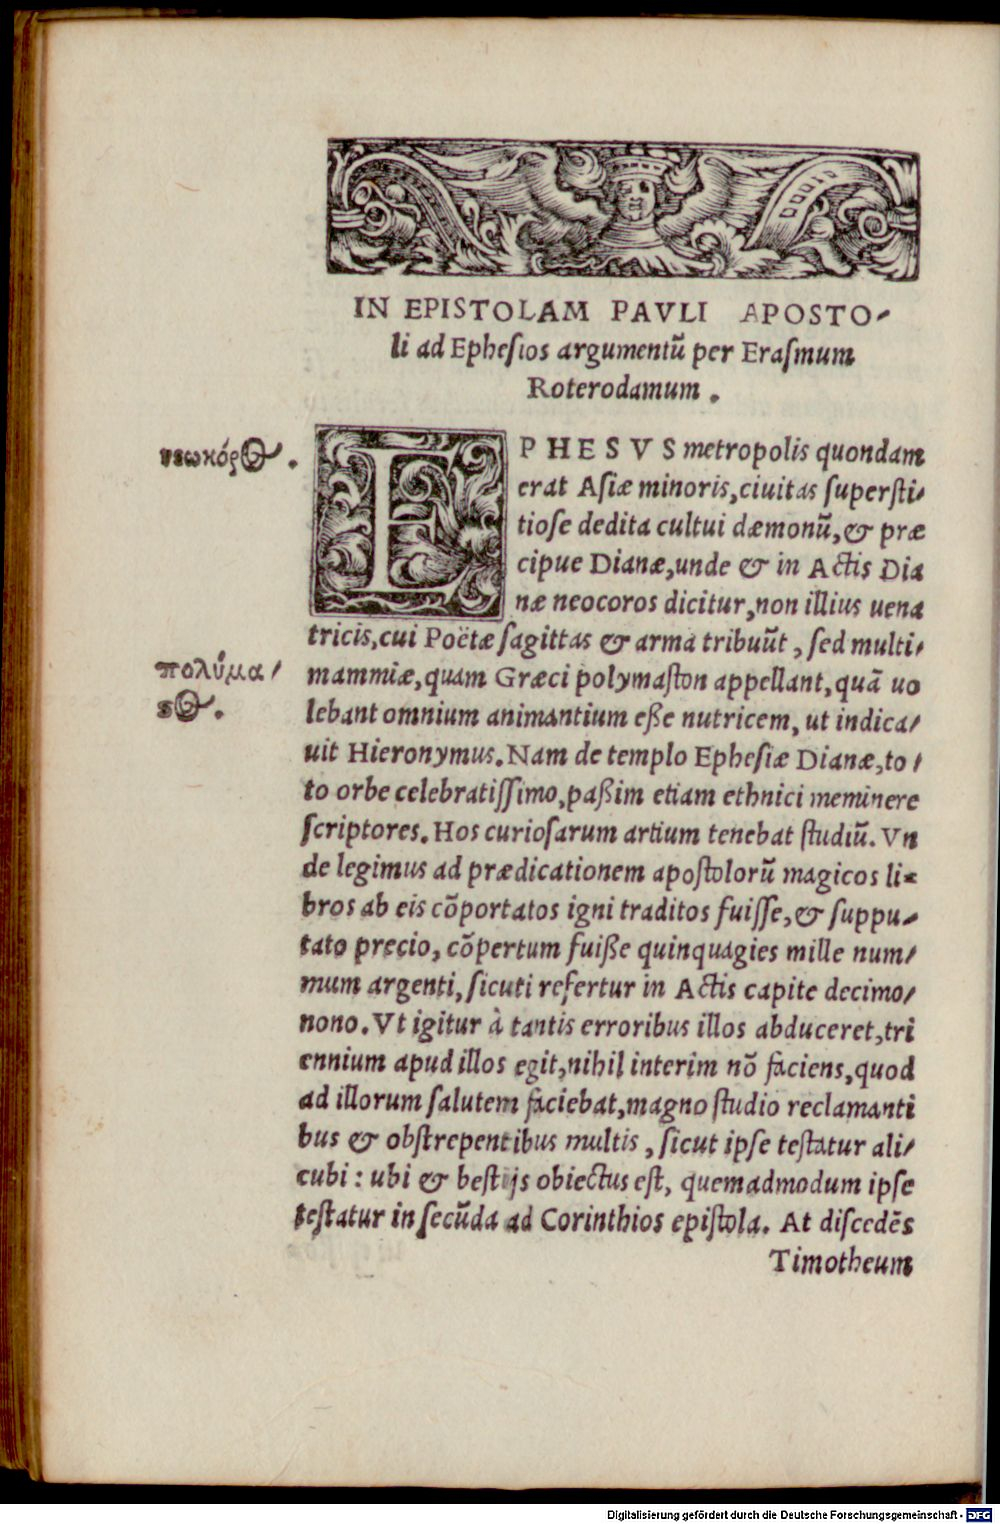 IN EPISTOLAM PAVLI APOSTO-
li ad Ephesios argumentũ per Erasmum
Roterodamum.
νεωκόρος.
EPHESVS metropolis quondam
erat Asiæ minoris, ciuitas supersti-
tiose dedita cultui dæmonũ, & præ
cipue Dianæ, unde & in Actis Dia
næ neocoros dicitur, non illius uena
tricis, cui Poëtæ sagittas & arma tribuũt, sed multi-
πολύμα-
ςος.
mammiæ, quam Græci polymaston appellant, quã uo
lebant omnium animantium eße nutricem, ut indica-
uit Hieronymus. Nam de templo Ephesiæ Dianæ, to-
to orbe celebratissimo, paßim etiam ethnici meminere
scriptores. Hos curiosarum artium tenebat studiũ. Vn
de legimus ad prædicationem apostolorũ magicos li-
bros ab eis cõportatos igni traditos fuisse, & suppu-
tato precio, cõpertum fuiße quinquagies mille num-
mum argenti, sicuti refertur in Actis capite decimo-
nono. Vt igitur à tantis erroribus illos abduceret, tri
ennium apud illos egit, nihil interim nõ faciens, quod
ad illorum salutem faciebat, magno studio reclamanti
bus & obstrepentibus multis, sicut ipse testatur ali-
cubi: ubi & bestijs obiectus est, quemadmodum ipse
testatur in secũda ad Corinthios epistola. At discedẽs
Timotheum
Digitalisierung gefördert durch die Deutsche Forschungsgemeinschaft - DFG